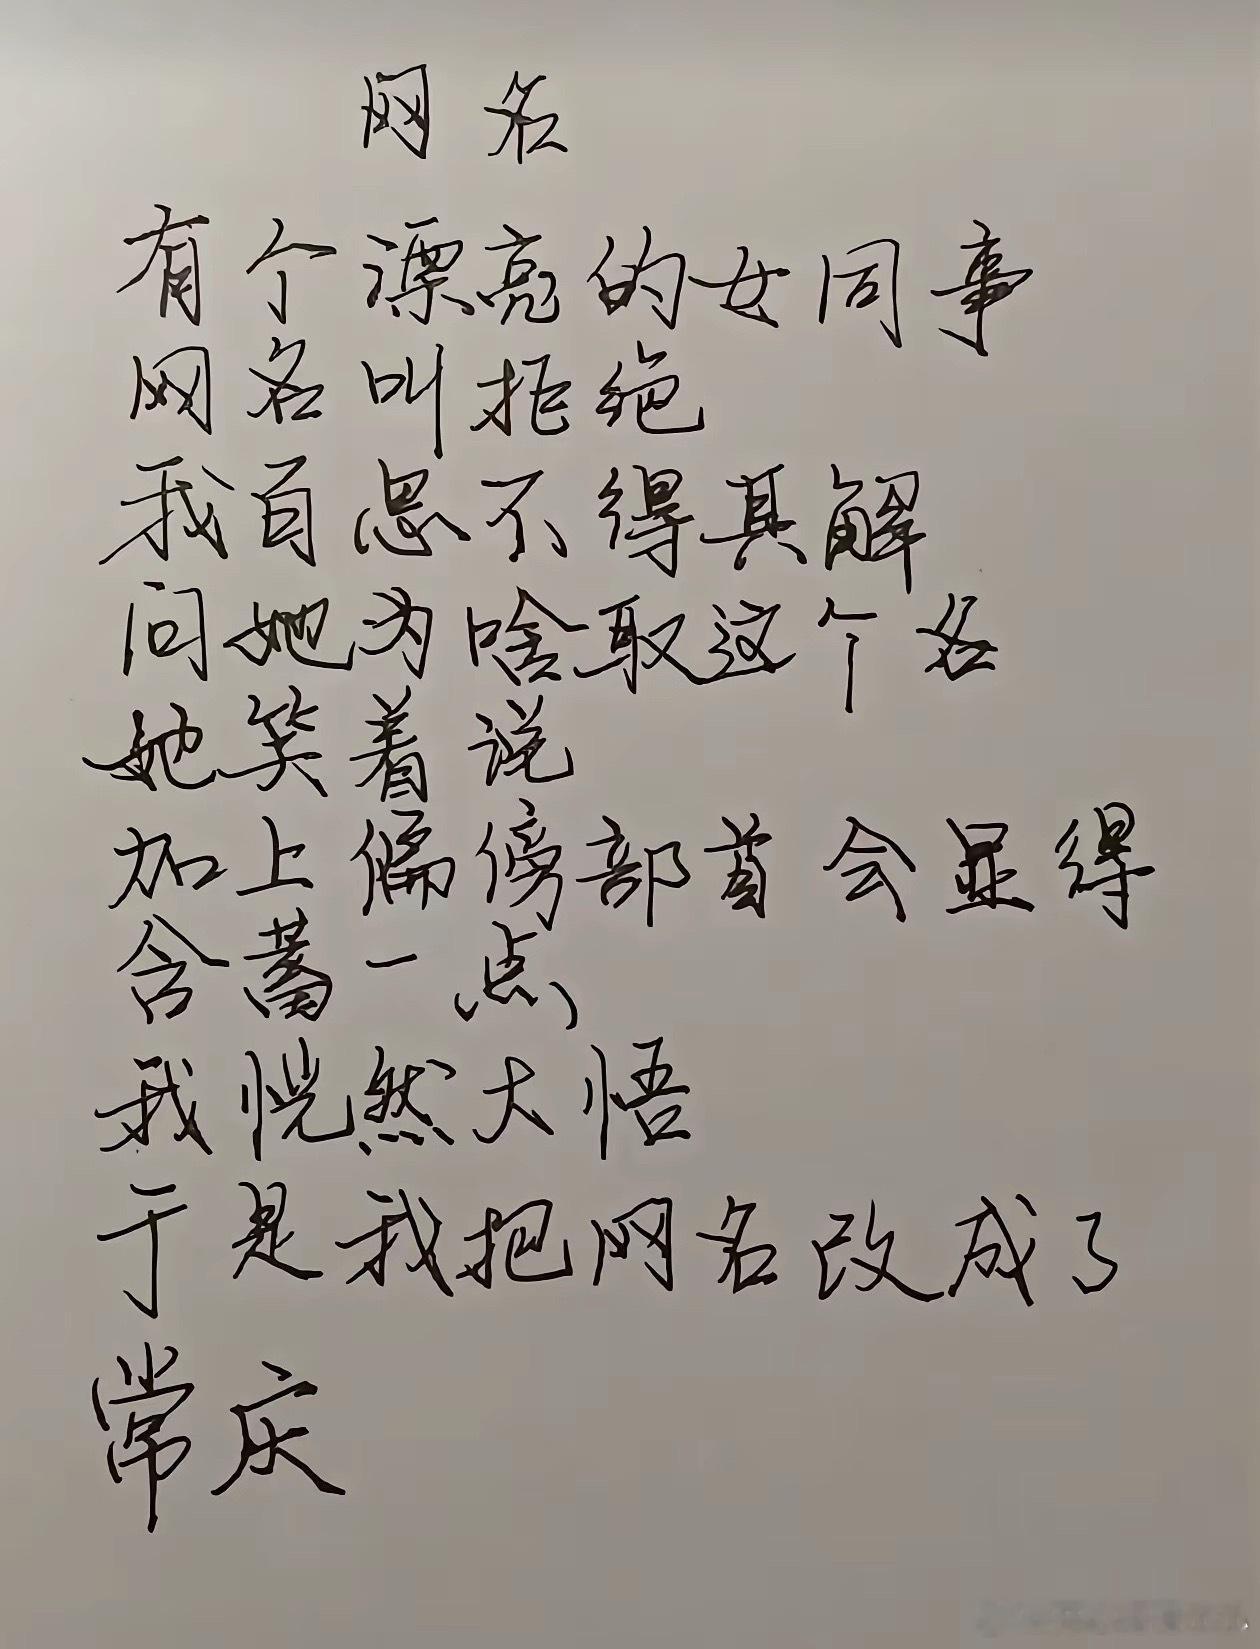 网名
有个漂亮的女同事
网名叫拒绝
我百思不得其解
问她为啥取这个名
她笑着说
加上偏傍部首会显得
含蓄一点
我恍然大悟
于是我把网名改成了
常庆